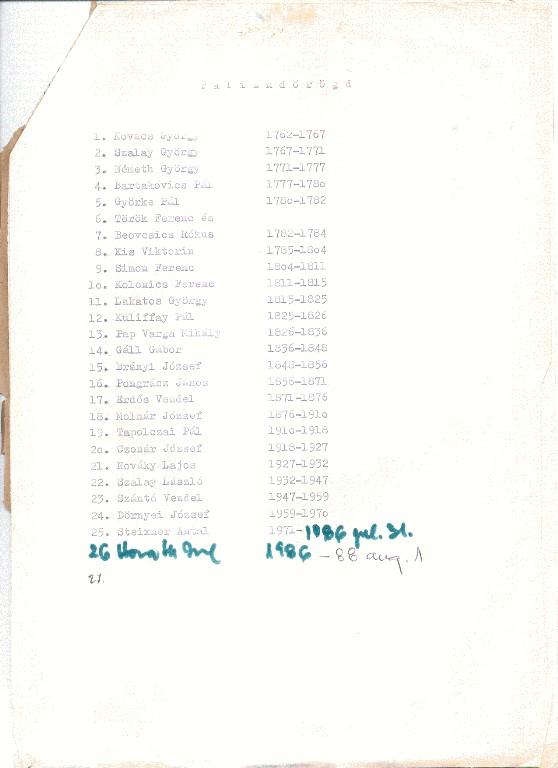 T a l i á n d ö r ö g d
1. Kovács György 1762-1767
2. Szalay György 1767-1771
3. Németh György 1771-1777
4. Bartakovics Pál 1777-178o
5. Györke Pál 178o-1782
6. Török Ferenc és
7. Beovcsics Rókus 1782-1784
8. Kis Viktorin 1785-18o4
9. Simon Ferenc 18o4-1811
1o. Kolonics Ferenc 1811-1815
11. Lakatos György 1815-1825
12. Kuliffay Pál 1825-1826
13. Pap Varga Mihály 1826-1836
14. Gáll Gábor 1836-1848
15. Brányi József 1848-1856
16. Pongrácz János 1856-1871
17. Erdős Vendel 1871-1876
18. Molnár József 1876-191o
19. Tapolczai Pál 191o-1918
2o. Czonár József 1918-1927
21. Nováky Lajos 1927-1932
22. Szalay László 1932-1947
23. Szántó Vendel 1947-1959
24. Dörnyei József 1959-197o
25. Steixner Antal 1971-1986 jul. 31.
26 Horváth 1986 - 88 aug. 1
27.